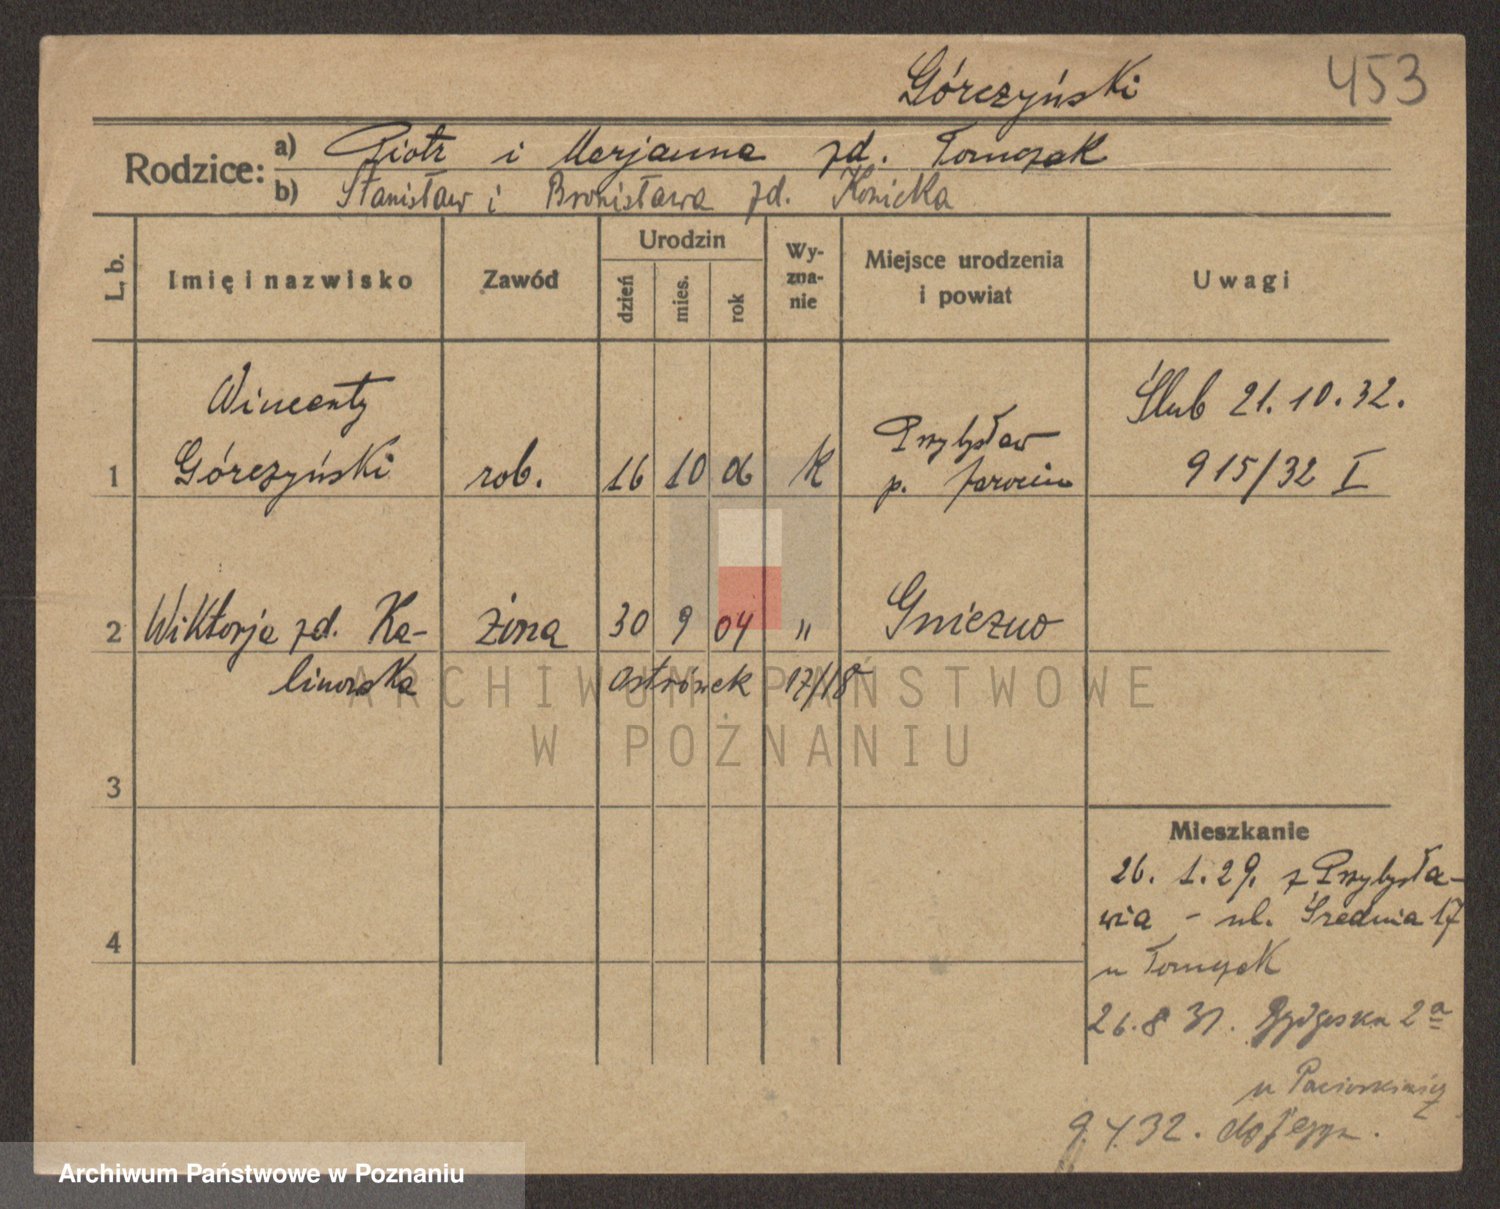 Górczyński 453
Rodzice: a) Piotr i Marjanna zd. Tomczak
b) Stanisław i Bronisława zd. Konicka
L. b. Imię i nazwisko Zawód Urodzin dzień mies. rok Wyznanie Miejsce urodzenia i powiat Uwagi
Wincenty
1 Górczyński rob. 16 10 06 k Przybysław
p. Jarocin
Ślub 21.10.32.
915/32 I
2 Wiktorja zd. Ka- żona 30 9 04 " Gniezno
linowska Ostrówek 17/18
3
4
Mieszkanie
26. 1. 29. z Przybysła-
wia - ul. Średnia 17
u Tomczak
26.8 31. Bydgoska 2a
u
9.4.32.
ARCHIWUM PAŃSTWOWE
W POZNANIU
Archiwum Państwowe w Poznaniu